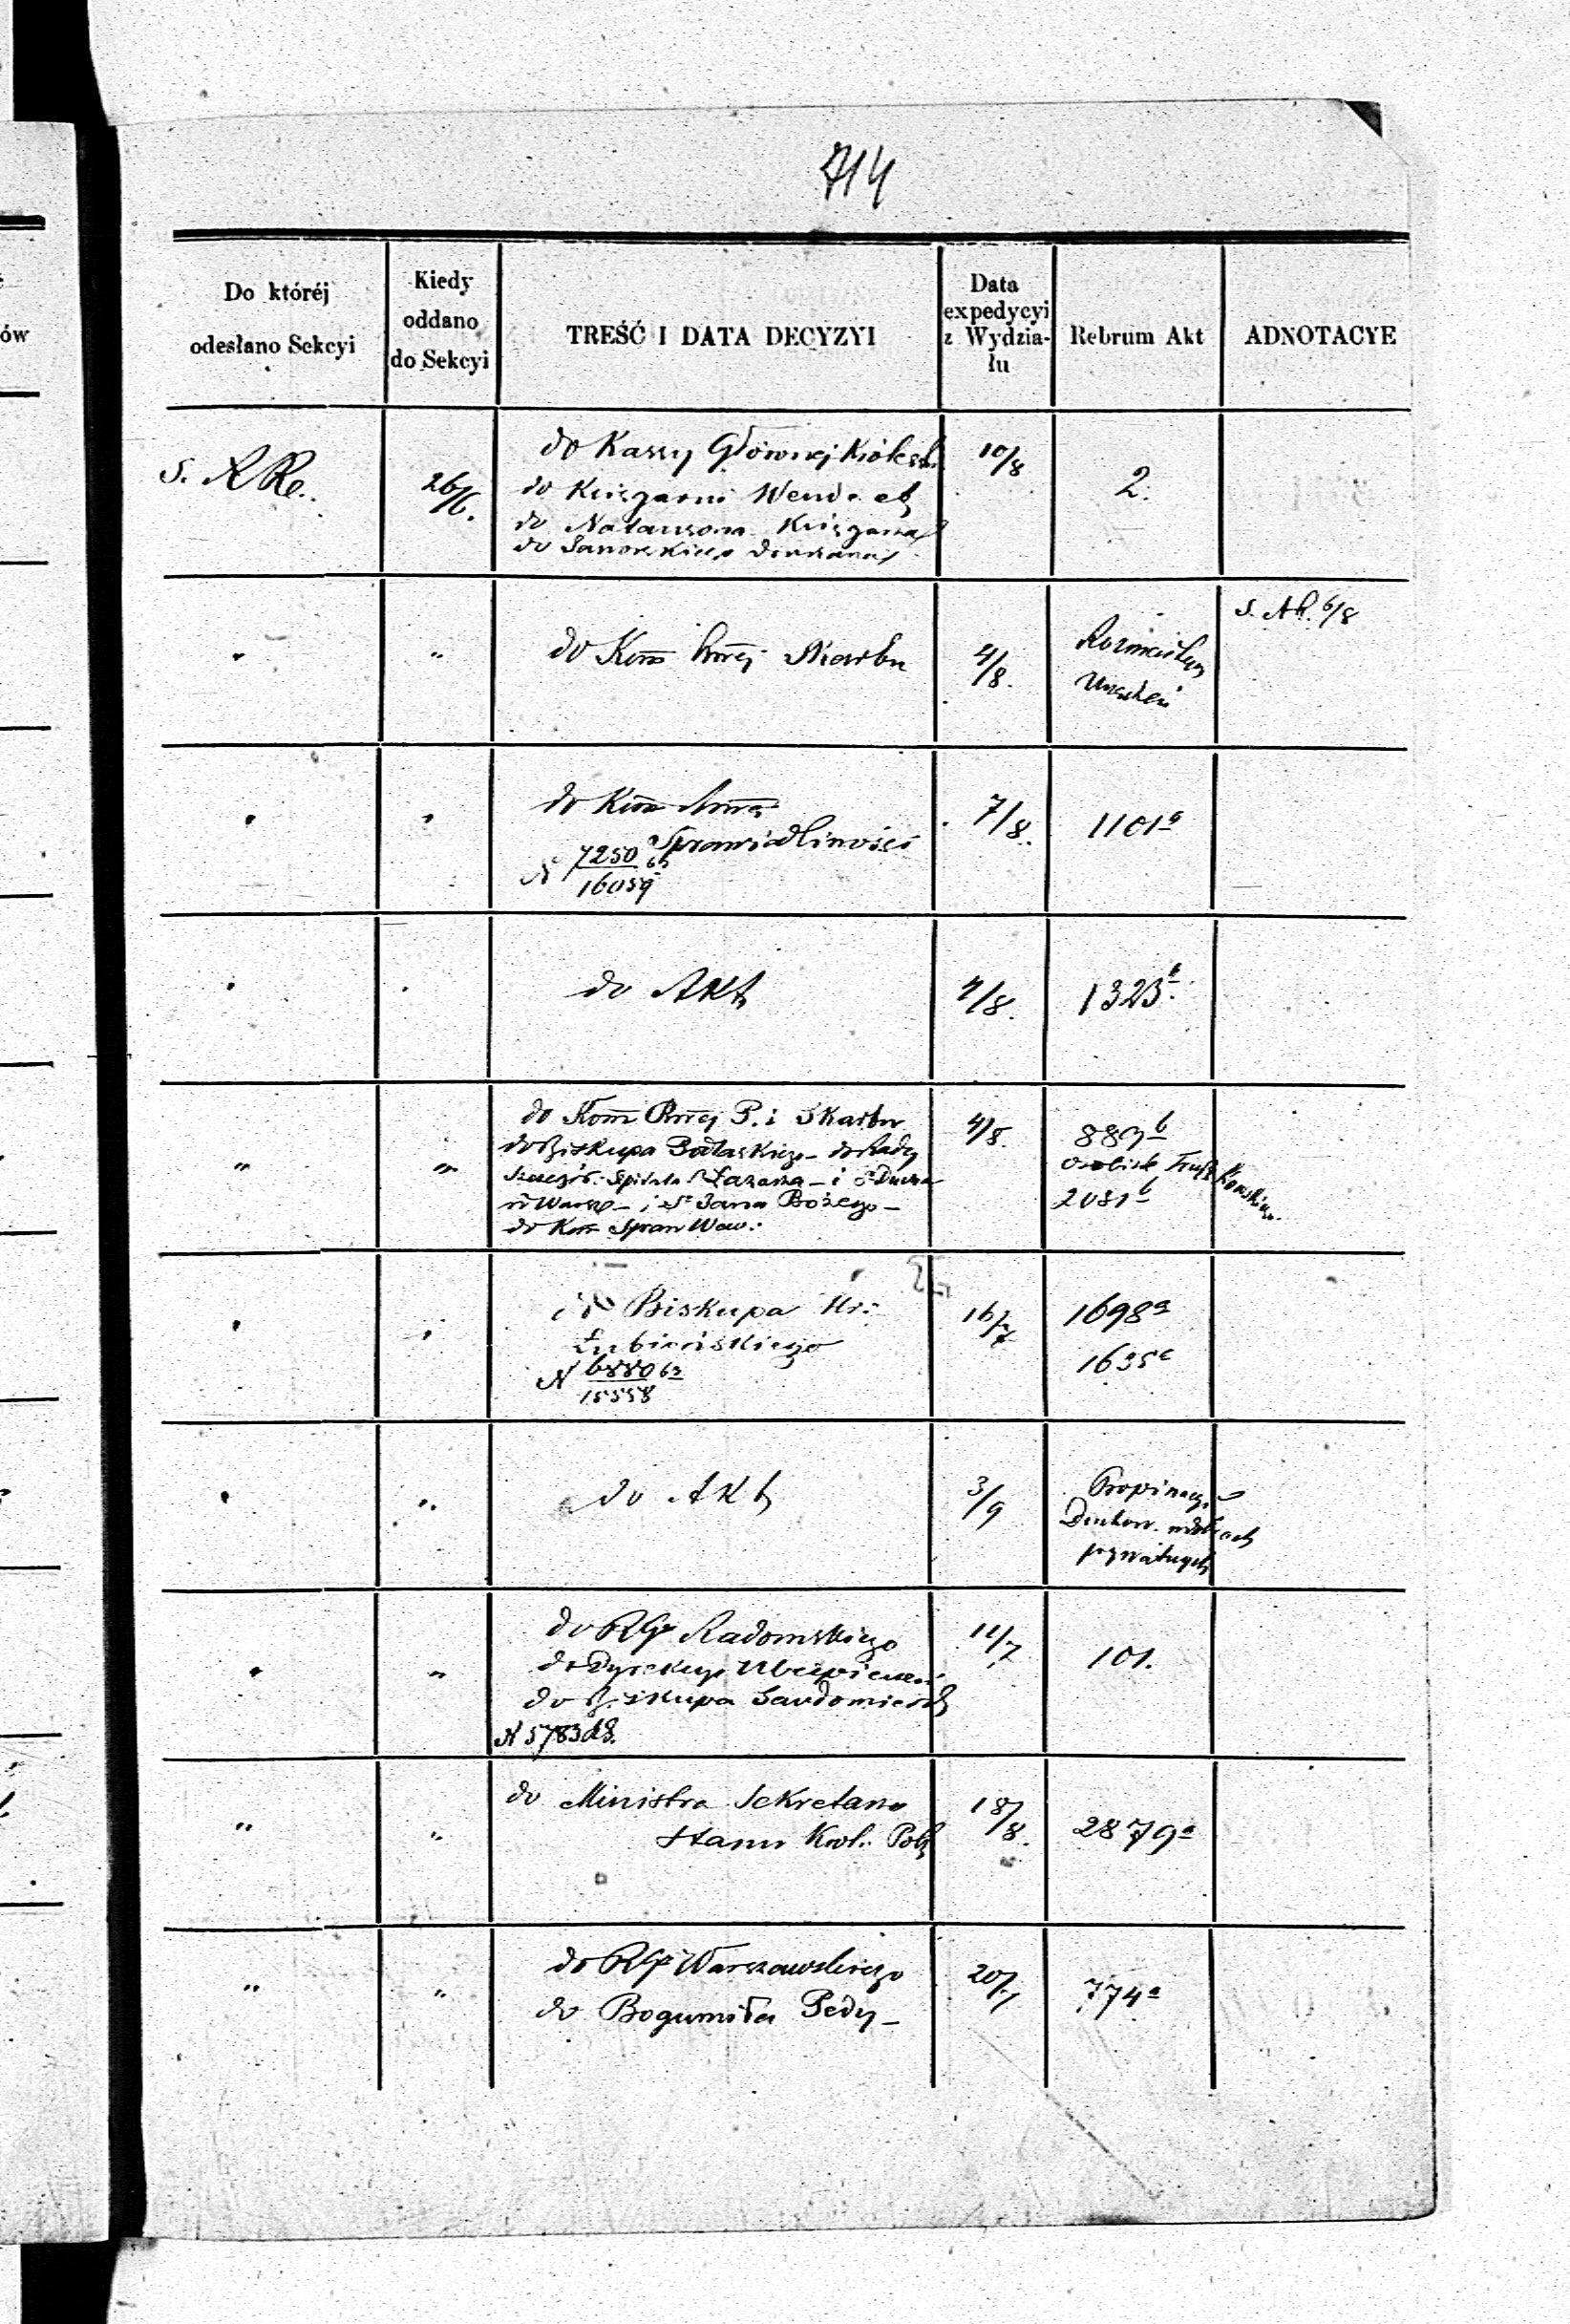 714
Do któréj odesłano Sekcyi
Kiedy oddano do Sekcyi
TREŚĆ I DATA DECYZYI
Data expedycyi z Wydzia-łu
Rebrum Akt
ADNOTACYE
S. R Re.
26/6.
do Kassy Głównej Królest.
do Księgarni Wende et
do Natansona Księgarza
do Janowskiego Drukarza
10/8
2.
"
"
do Kom Rząej Skarbu
4/8.
Rozmaitych
S. Ak. 6/8
"
"
do Kom Rząej
Sprawiedliwości
N 7250/16059 63
7/8.
1101a
"
"
do Akt
4/8.
1323b
"
"
do Kom Rząej P. i Skarbu
do Biskupa Podlaskiego – do Rady
Szczegół. Spitala S Łazarza – i S Ducha
w Warsz – i S Jana Bożego –
do Kom Spraw Wew:
4/8.
883b
osobiste
2081b
"
"
do Biskupa Hr:
Łubieńskiego
N 6880/15558 63
16/7
1698a
1635c
"
"
do Akt
3/9
Propinacye
Duchow. w
prywatnych
"
"
do RG Radomskiego
do Dyrekcyi Ubezpieczeń
do Biskupa Sandomiersk
N 5783
11/7
101.
"
"
do Ministra Sekretarza
Stanu Król: Pols
18/8.
2879a
"
"
do RG Warszawskiego
do Bogumiła Pedy –
20/7
774a